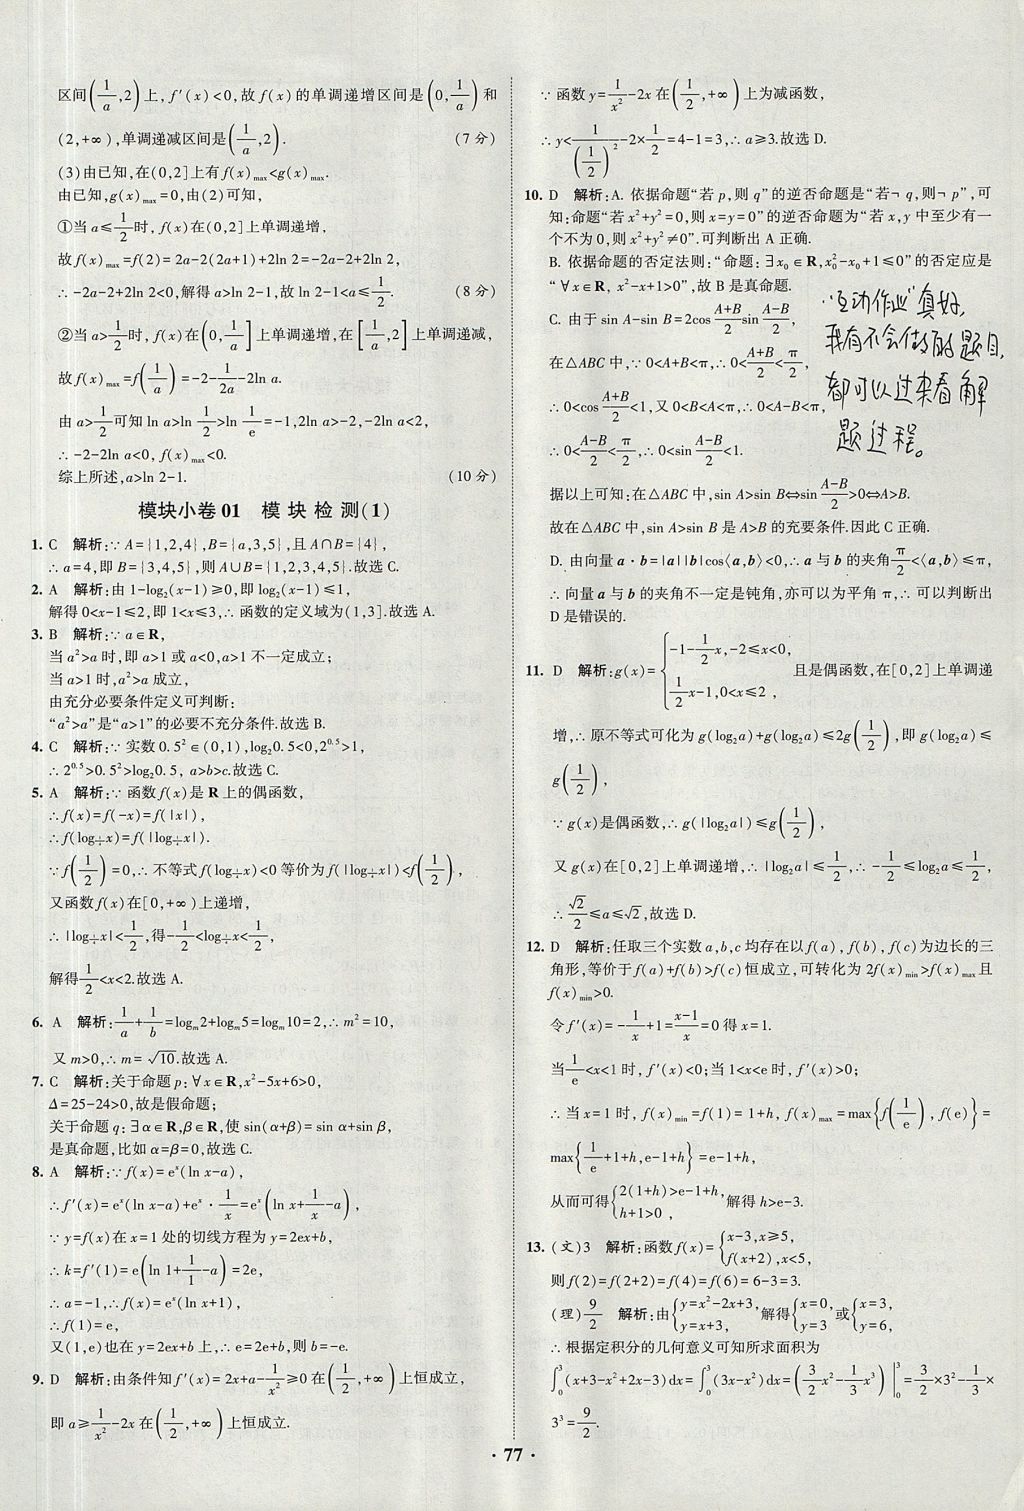 区间(1/a,2)上,f′(x)<0,故f(x)的单调递增区间是(0,1/a)和
(2,+∞),单调递减区间是(1/a,2). (7分)
(3)由已知,在(0,2]上有f(x)max<g(x)max.
由已知,g(x)max=0,由(2)可知,
①当a≤1/2时,f(x)在(0,2]上单调递增,
故f(x)max=f(2)=2a-2(2a+1)+2ln 2=-2a-2+2ln 2,
∴-2a-2+2ln 2<0,解得a>ln 2-1,故ln 2-1<a≤1/2. (8分)
②当a>1/2时,f(x)在(0,1/a]上单调递增,在[1/a,2]上单调递减,
故f(x)max=f(1/a)=-2-1/2a-2ln a.
由a>1/2可知ln a>ln 1/2>ln 1/e=-1,2ln a>-2,-2ln a<2,
∴-2-2ln a<0,f(x)max<0.
综上所述,a>ln 2-1. (10分)
模块小卷01 模块检测(1)
1. C 解析:∵A={1,2,4},B={a,3,5},且A∩B={4},
∴a=4,即B={3,4,5},则A∪B={1,2,3,4,5}.故选C.
2. A 解析:由1-log₂(x-1)≥0,即log₂(x-1)≤1,
解得0<x-1≤2,即1<x≤3,∴函数的定义域为(1,3].故选A.
3. B 解析:∵a∈R,
当a²>a时,即a>1或a<0,a>1不一定成立;
当a>1时,a²>a成立,
由充分必要条件定义可判断:
“a²>a”是“a>1”的必要不充分条件.故选B.
4. C 解析:∵实数0.5²∈(0,1),log₂0.5<0,2^0.5>1,
∴2^0.5>0.5²>log₂0.5,a>b>c.故选C.
5. A 解析:∵函数f(x)是R上的偶函数,
∴f(x)=f(-x)=f(|x|),
∴f(log÷x)=f(|log÷x|).
∵f(1/2)=0,∴不等式f(log÷x)<0等价为f(|log÷x|)<f(1/2),
又函数f(x)在[0,+∞)上递增,
∴|log÷x|<1/2,得-1/2<log÷x<1/2,
解得1/2<x<2.故选A.
6. A 解析:1/a+1/b=logₘ2+logₘ5=logₘ10=2,∴m²=10,
又m>0,∴m=√10.故选A.
7. C 解析:关于命题p:∀x∈R,x²-5x+6>0,
Δ=25-24>0,故是假命题;
关于命题q:∃α∈R,β∈R,使sin(α+β)=sin α+sin β,
是真命题,比如α=β=0,故选C.
8. A 解析:∵f(x)=eˣ(ln x-a),
∴f′(x)=eˣ(ln x-a)+eˣ·1/x=eˣ(ln x+1/x-a),
∵y=f(x)在x=1处的切线方程为y=2ex+b,
∴k=f′(1)=e(ln 1+1/1-a)=2e,
∴a=-1,∴f(x)=eˣ(ln x+1),
∴f(1)=e,
又(1,e)也在y=2ex+b上,∴e=2e+b,则b=-e.
9. D 解析:由条件知f′(x)=2x+a-1/x²≥0在(1/2,+∞)上恒成立,
即a≥1/x²-2x在(1/2,+∞)上恒成立.
∵函数y=1/x²-2x在(1/2,+∞)上为减函数,
∴y<1/(1/2)²-2×1/2=4-1=3,∴a≥3.故选D.
10. D 解析:A. 依据命题“若p,则q”的逆否命题是“若¬q,则¬p”,可
知:命题“若x²+y²=0,则x=y=0”的逆否命题为“若x,y中至少有一
个不为0,则x²+y²≠0”.可判断出A正确.
B. 依据命题的否定法则:“命题:∃x₀∈R,x₀²-x₀+1≤0”的否定应是
“∀x∈R, x²-x+1>0”,故B是真命题.
C. 由于sin A-sin B=2cos (A+B)/2 sin (A-B)/2,
在△ABC中,∵0<A+B<π,∴0<(A+B)/2<π/2,
∴0<cos (A+B)/2<1,又0<B<A<π,
∴0<(A-B)/2<π/2,∴0<sin (A-B)/2<1.
据以上可知:在△ABC中,sin A>sin B⇔sin (A-B)/2>0⇔A>B.
故在△ABC中,sin A>sin B是A>B的充要条件.因此C正确.
D. 由向量a·b=|a||b|cos⟨a,b⟩<0,∴a与b的夹角π/2<⟨a,b⟩≤π,
∴向量a与b的夹角不一定是钝角,亦可以为平角π,∴可以判断出
D是错误的.
“互动作业”真好,
我有不会做的题目,
都可以过来看解
题过程。
11. D 解析:g(x)={-1-1/2x,-2≤x<0, 1/2x-1,0<x≤2, 且是偶函数,在[0,2]上单调递
增,∴原不等式可化为g(log₂a)+g(log₂a)≤2g(1/2),即g(log₂a)≤
g(1/2),
∵g(x)是偶函数,∴g(|log₂a|)≤g(1/2),
又g(x)在[0,2]上单调递增,∴|log₂a|≤1/2,∴-1/2≤log₂a≤1/2,
∴√2/2≤a≤√2,故选D.
12. D 解析:任取三个实数a,b,c均存在以f(a),f(b),f(c)为边长的三
角形,等价于f(a)+f(b)>f(c)恒成立,可转化为2f(x)min>f(x)max且
f(x)min>0.
令f′(x)=-1/x+1=(x-1)/x=0得x=1.
当1/e<x<1时,f′(x)<0;当1<x<e时,f′(x)>0;
∴当x=1时,f(x)min=f(1)=1+h,f(x)max=max{f(1/e),f(e)}=
max{1/e+1+h,e-1+h}=e-1+h,
从而可得{2(1+h)>e-1+h, h+1>0, 解得h>e-3.
13. (文)3 解析:函数f(x)={x-3,x≥5, f(x+2),x<5,
则f(2)=f(2+2)=f(4)=f(6)=6-3=3.
(理)9/2 解析:由{y=x²-2x+3, y=x+3, 解得{x=0, y=3 或{x=3, y=6,
∴根据定积分的几何意义可知所求面积为
∫₀³(x+3-x²+2x-3)dx=∫₀³(3x-x²)dx=(3/2x²-1/3x³)|₀³=3/2×3²-1/3×
3³=9/2.
· 77 ·